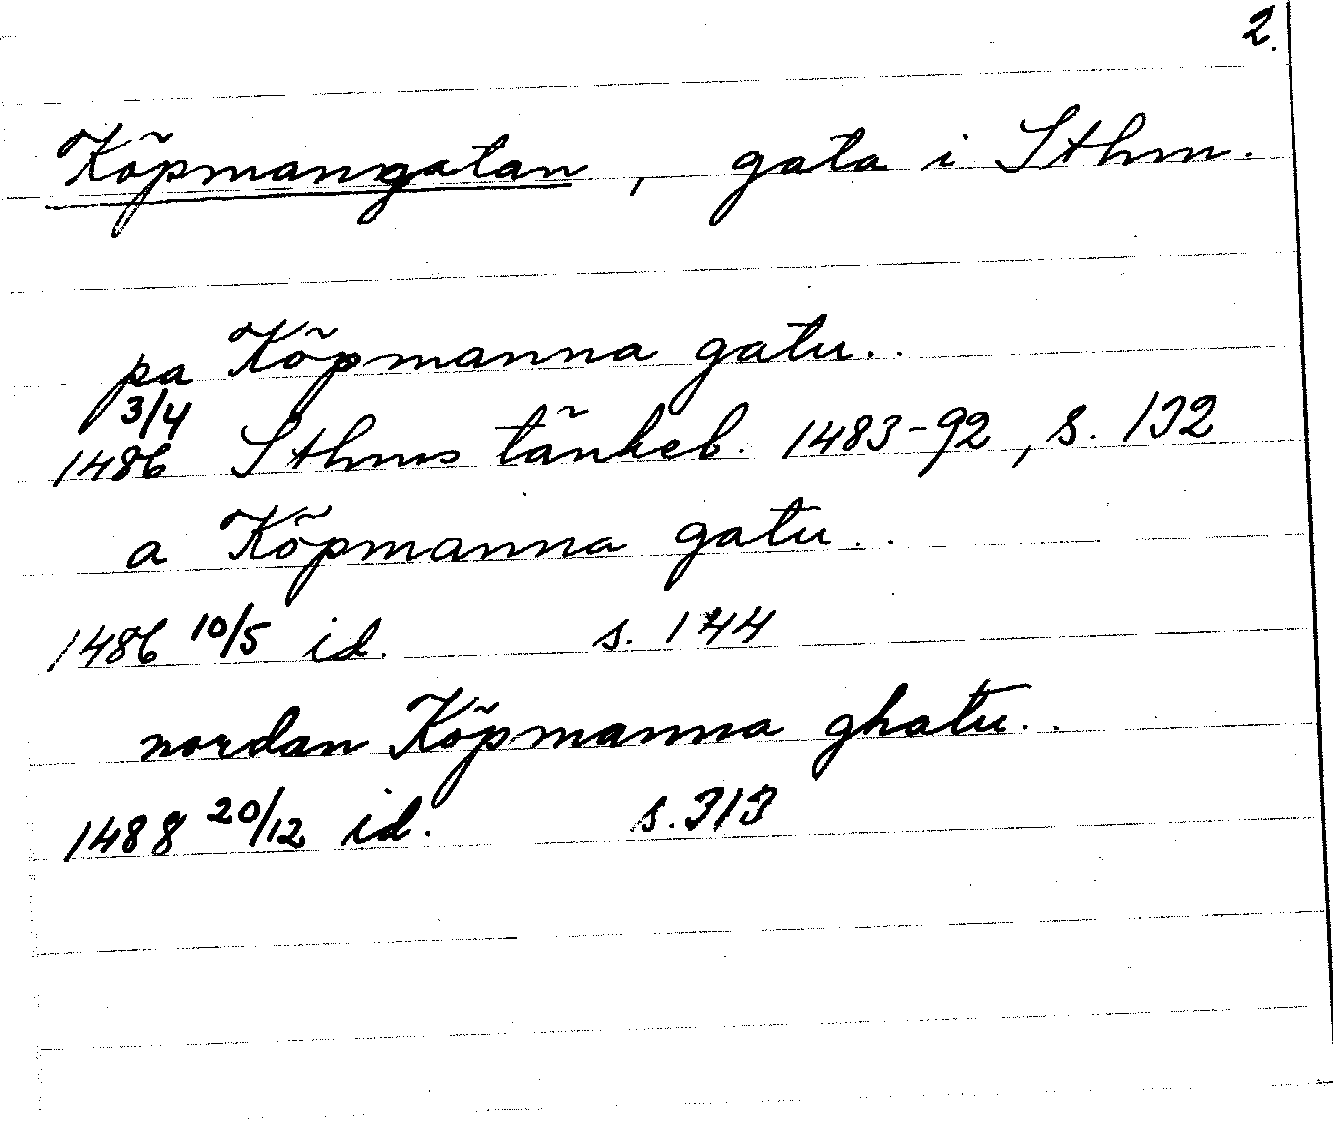 2.
Köpmangatan, gata i Sthm.
pa Köpmanna gatu..
3/4
1486 Sthms tänkeb. 1483-92, s. 132
a Köpmanna gatu..
1486 10/5 id. s. 144
nordan Köpmanna ghatu..
1488 20/12 id. s. 313